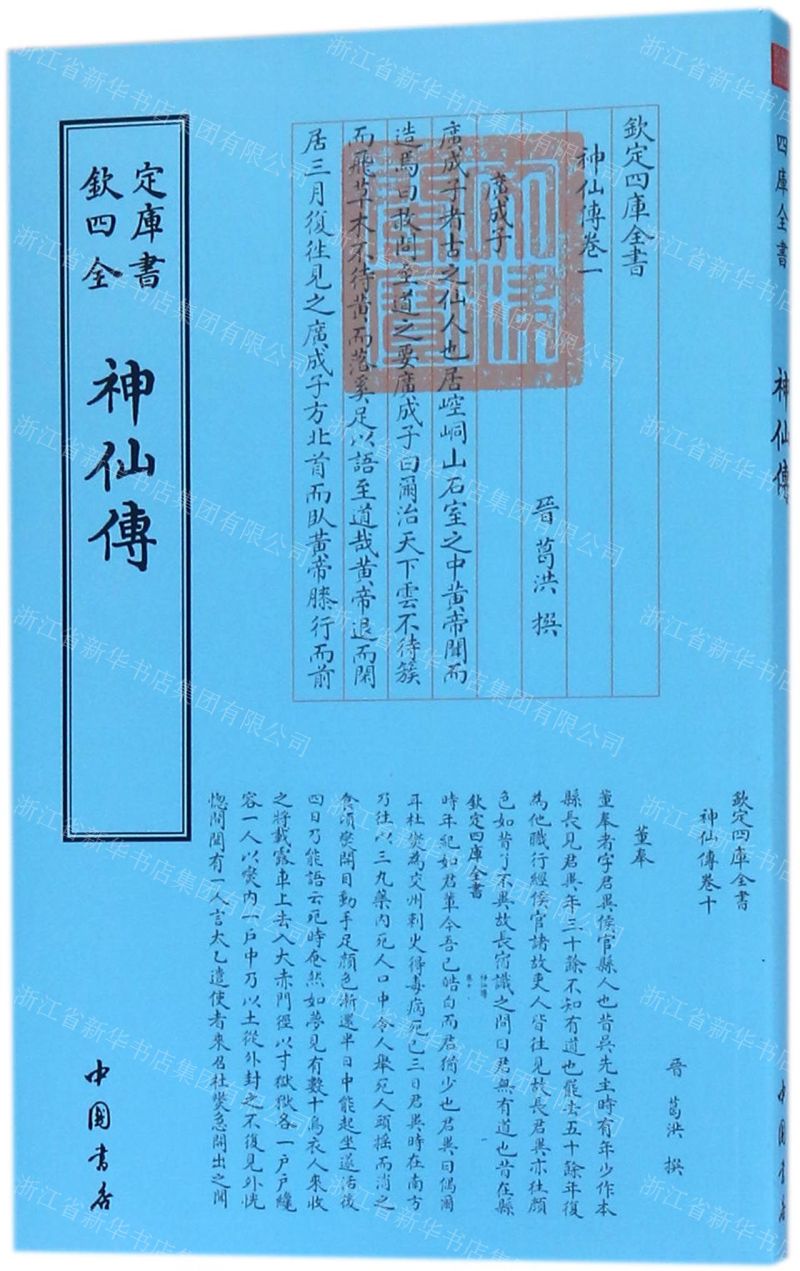 欽定四庫全書
神仙傳
中國書店
欽定四庫全書
神仙傳卷一
晉 葛洪 撰
廣成子
廣成子者古之仙人也居崆峒山石室之中黄帝聞而
造焉曰敢問至道之要廣成子曰爾治天下雲不待簇
而飛草木不待黄而落奚足以語至道哉黄帝退而閑
居三月復徃見之廣成子方北首而卧黄帝膝行而前
欽定四庫全書
神仙傳卷十
晉 葛洪 撰
董奉
董奉者字君異侯官縣人也昔吳先主時有年少作本
縣長見君異年三十餘不知有道也罷去五十餘年復
為他職行經侯官諸故吏人皆往見故長君異亦往顔
色如昔了不異故長宿識之問曰君無有道也昔在縣
欽定四庫全書
神仙傳
卷十
時年紀如君輩今吾已皓白而君猶少也君異曰偶爾
耳杜燮為交州刺史得毒病死已三日君異時在南方
乃往以三九藥内死人口中令人舉死人頭摇而消之
食頃燮開目動手足顔色漸還半日中能起坐遂活後
四日乃能語云死時奄然如夢見有數十烏衣人來收
之將載露車上去入大赤門徑以寸獄獄各一户户纔
容一人以燮内一户中乃以土從外封之不復見外恍
惚間聞有一人言太乙遣使者來召杜燮急開出之聞
四庫全書
神仙傳
中國書店
浙江省新华书店集团有限公司